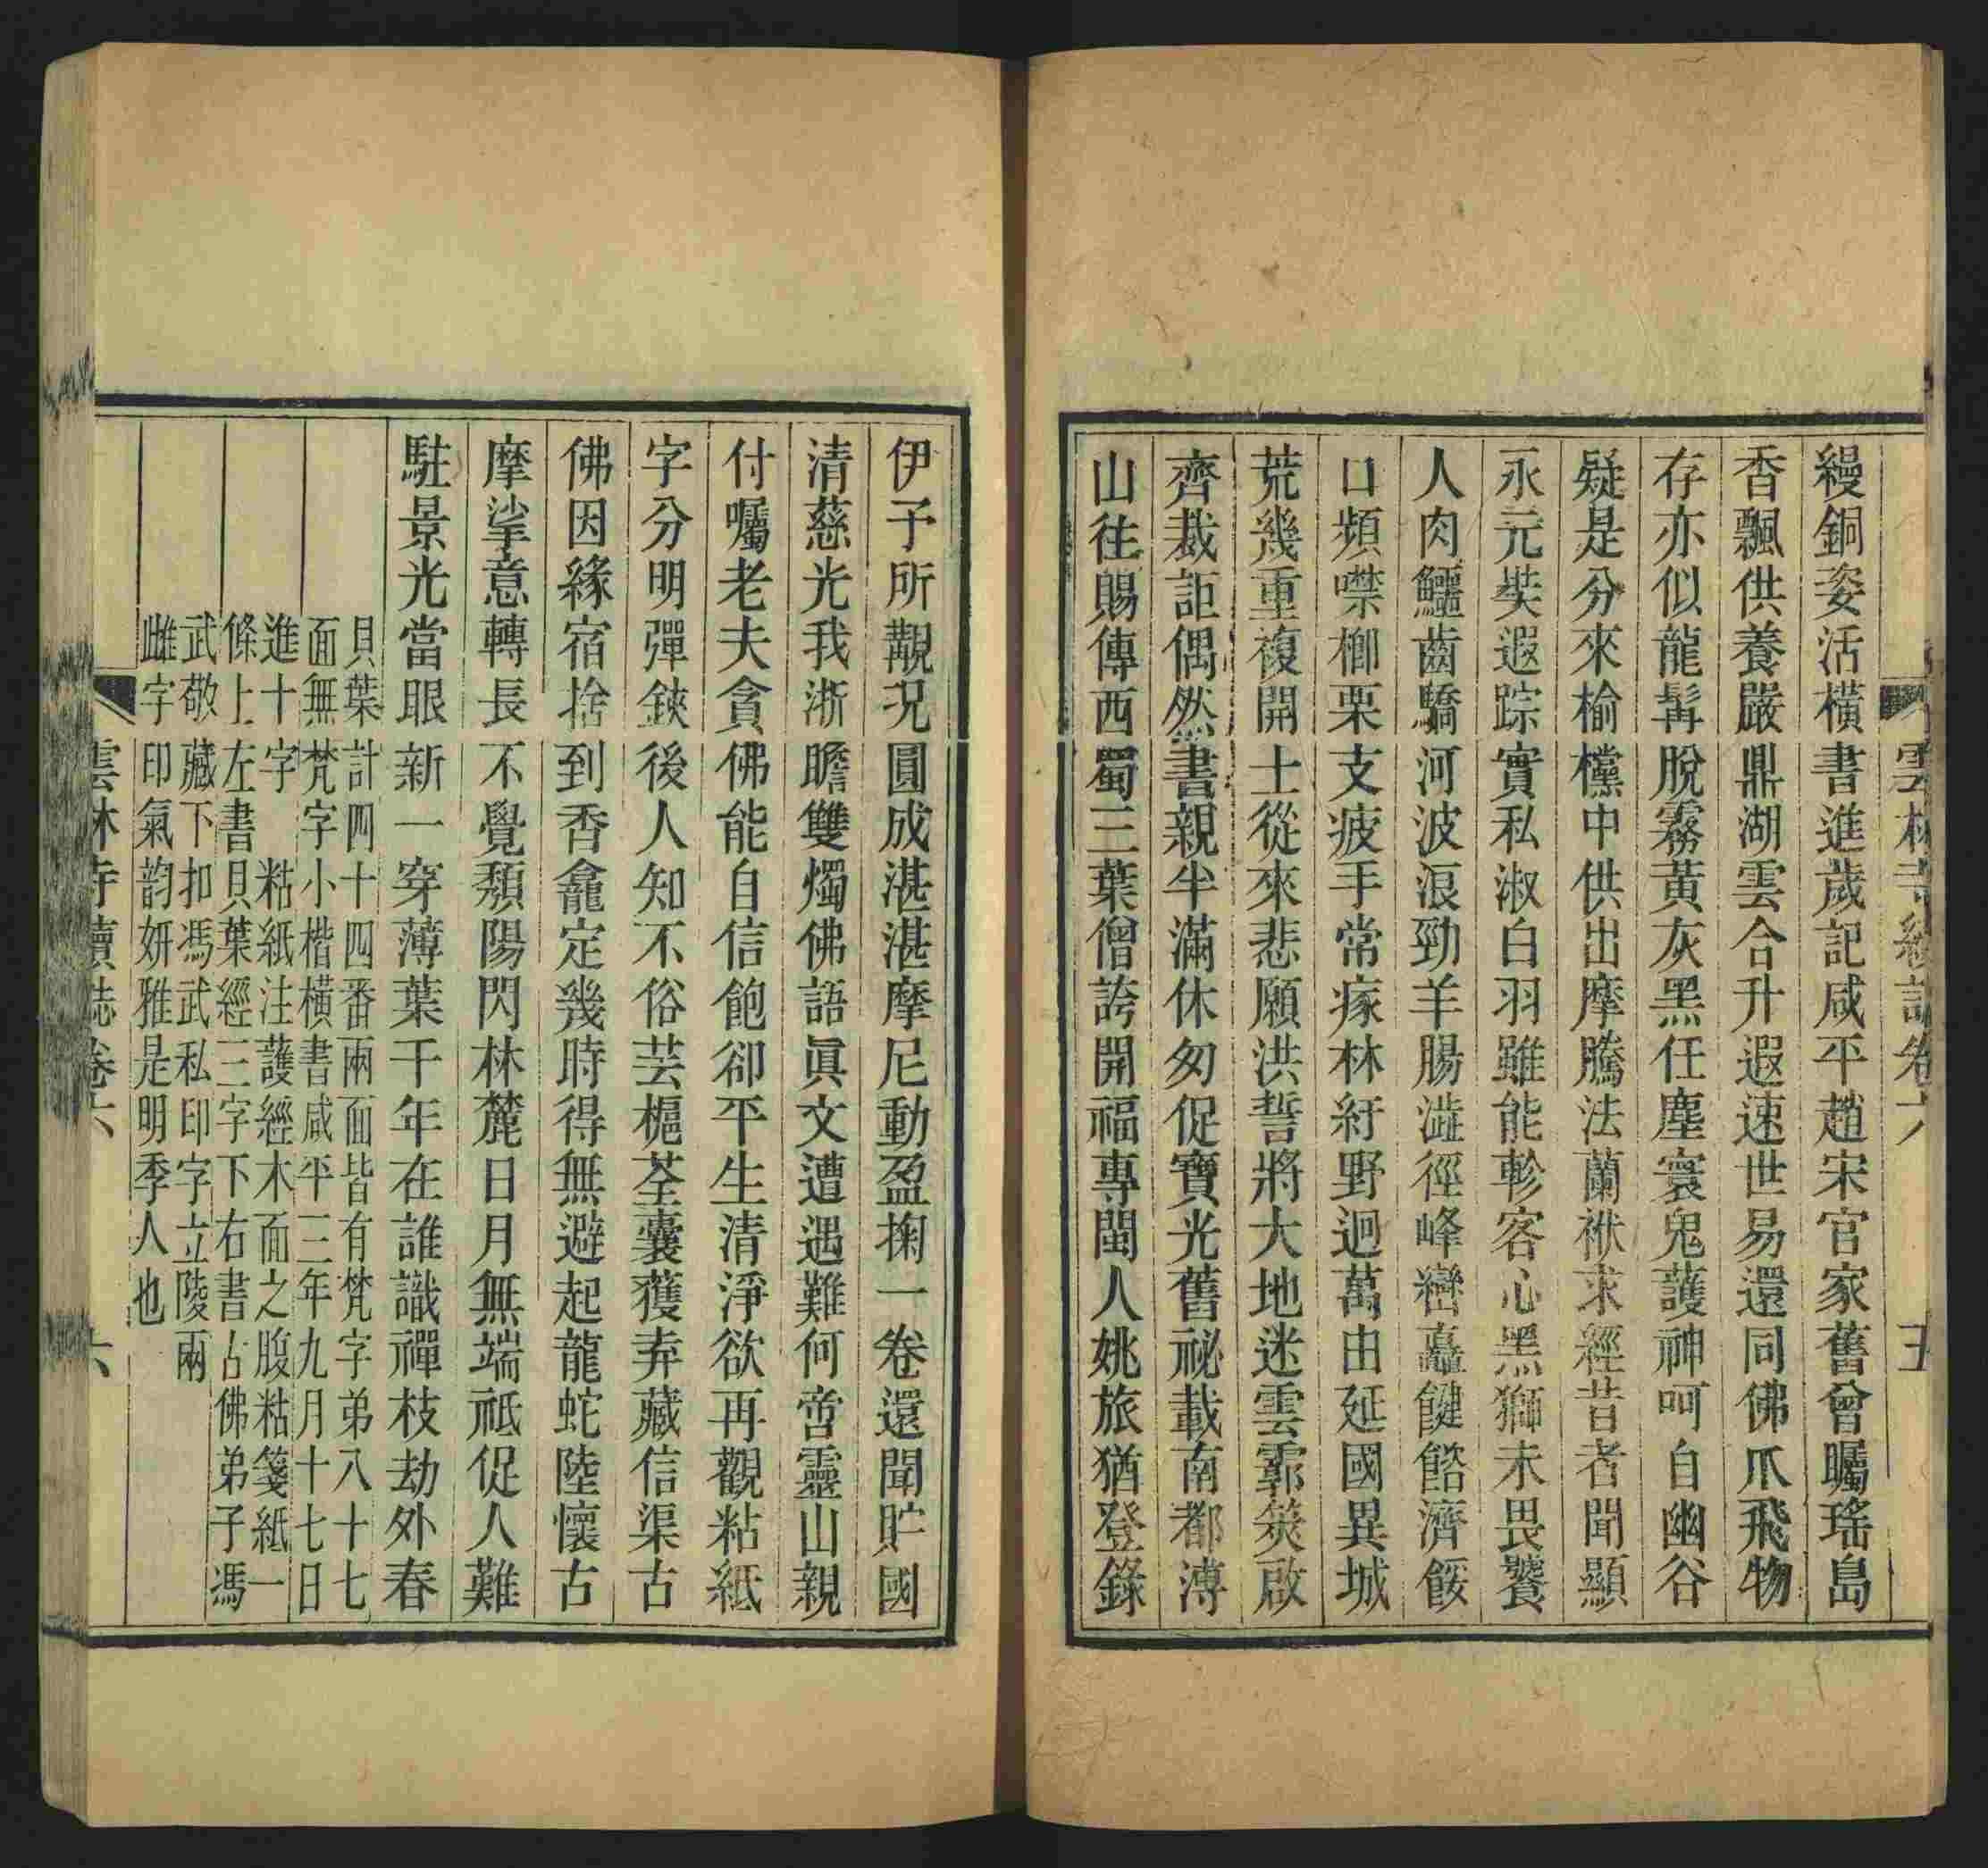 雲林寺續誌卷六
五
縵銅姿活橫書進歲記咸平趙宋官家舊曾矚瑤島
香飄供養嚴鼎湖雲合升遐速世易還同佛爪飛物
存亦似龍髯脫霧黃灰黑任塵寰鬼護神呵自幽谷
疑是分來榆欓中供出摩騰法蘭袱求經昔者聞顯
永元奘遐踪實私淑白羽雖能軫客心黑獅未畏饕
人肉鱷齒驕河波浪勁羊腸澁徑峰巒矗饘餎濟餒
口頻噤楖栗支疲手常瘃林紆野迴萬由延國異城
荒幾重複開士從來悲願洪誓將大地迷雲霩筴啟
齊裁詎偶然書親半滿休匆促寶光舊祕載南都溥
山往賜傳西蜀三葉僧誇開福專閩人姚旅猶登錄
伊予所覯況圓成湛湛摩尼動盈掬一卷還聞貯國
清慈光我浙瞻雙燭佛語眞文遭遇難何啻靈山親
付囑老夫貪佛能自信飽卻平生清淨欲再觀粘紙
字分明彈鋏後人知不俗芸櫙荃囊獲弆藏信渠古
佛因緣宿捨到香龕定幾時得無避起龍蛇陸懷古
摩挲意轉長不覺頹陽閃林麓日月無端祗促人難
駐景光當眼新一穿薄葉千年在誰識禪枝劫外春
貝葉計四十四番兩面皆有梵字弟八十七
面無梵字小楷橫書咸平三年九月十七日
進十字　粘紙注護經木面之腹粘箋紙一
條上左書貝葉經三字下右書占佛弟子馮
武敬藏下扣馮武私印字立陵兩
雌字印氣韵妍雅是明季人也
雲林寺續誌卷六
六